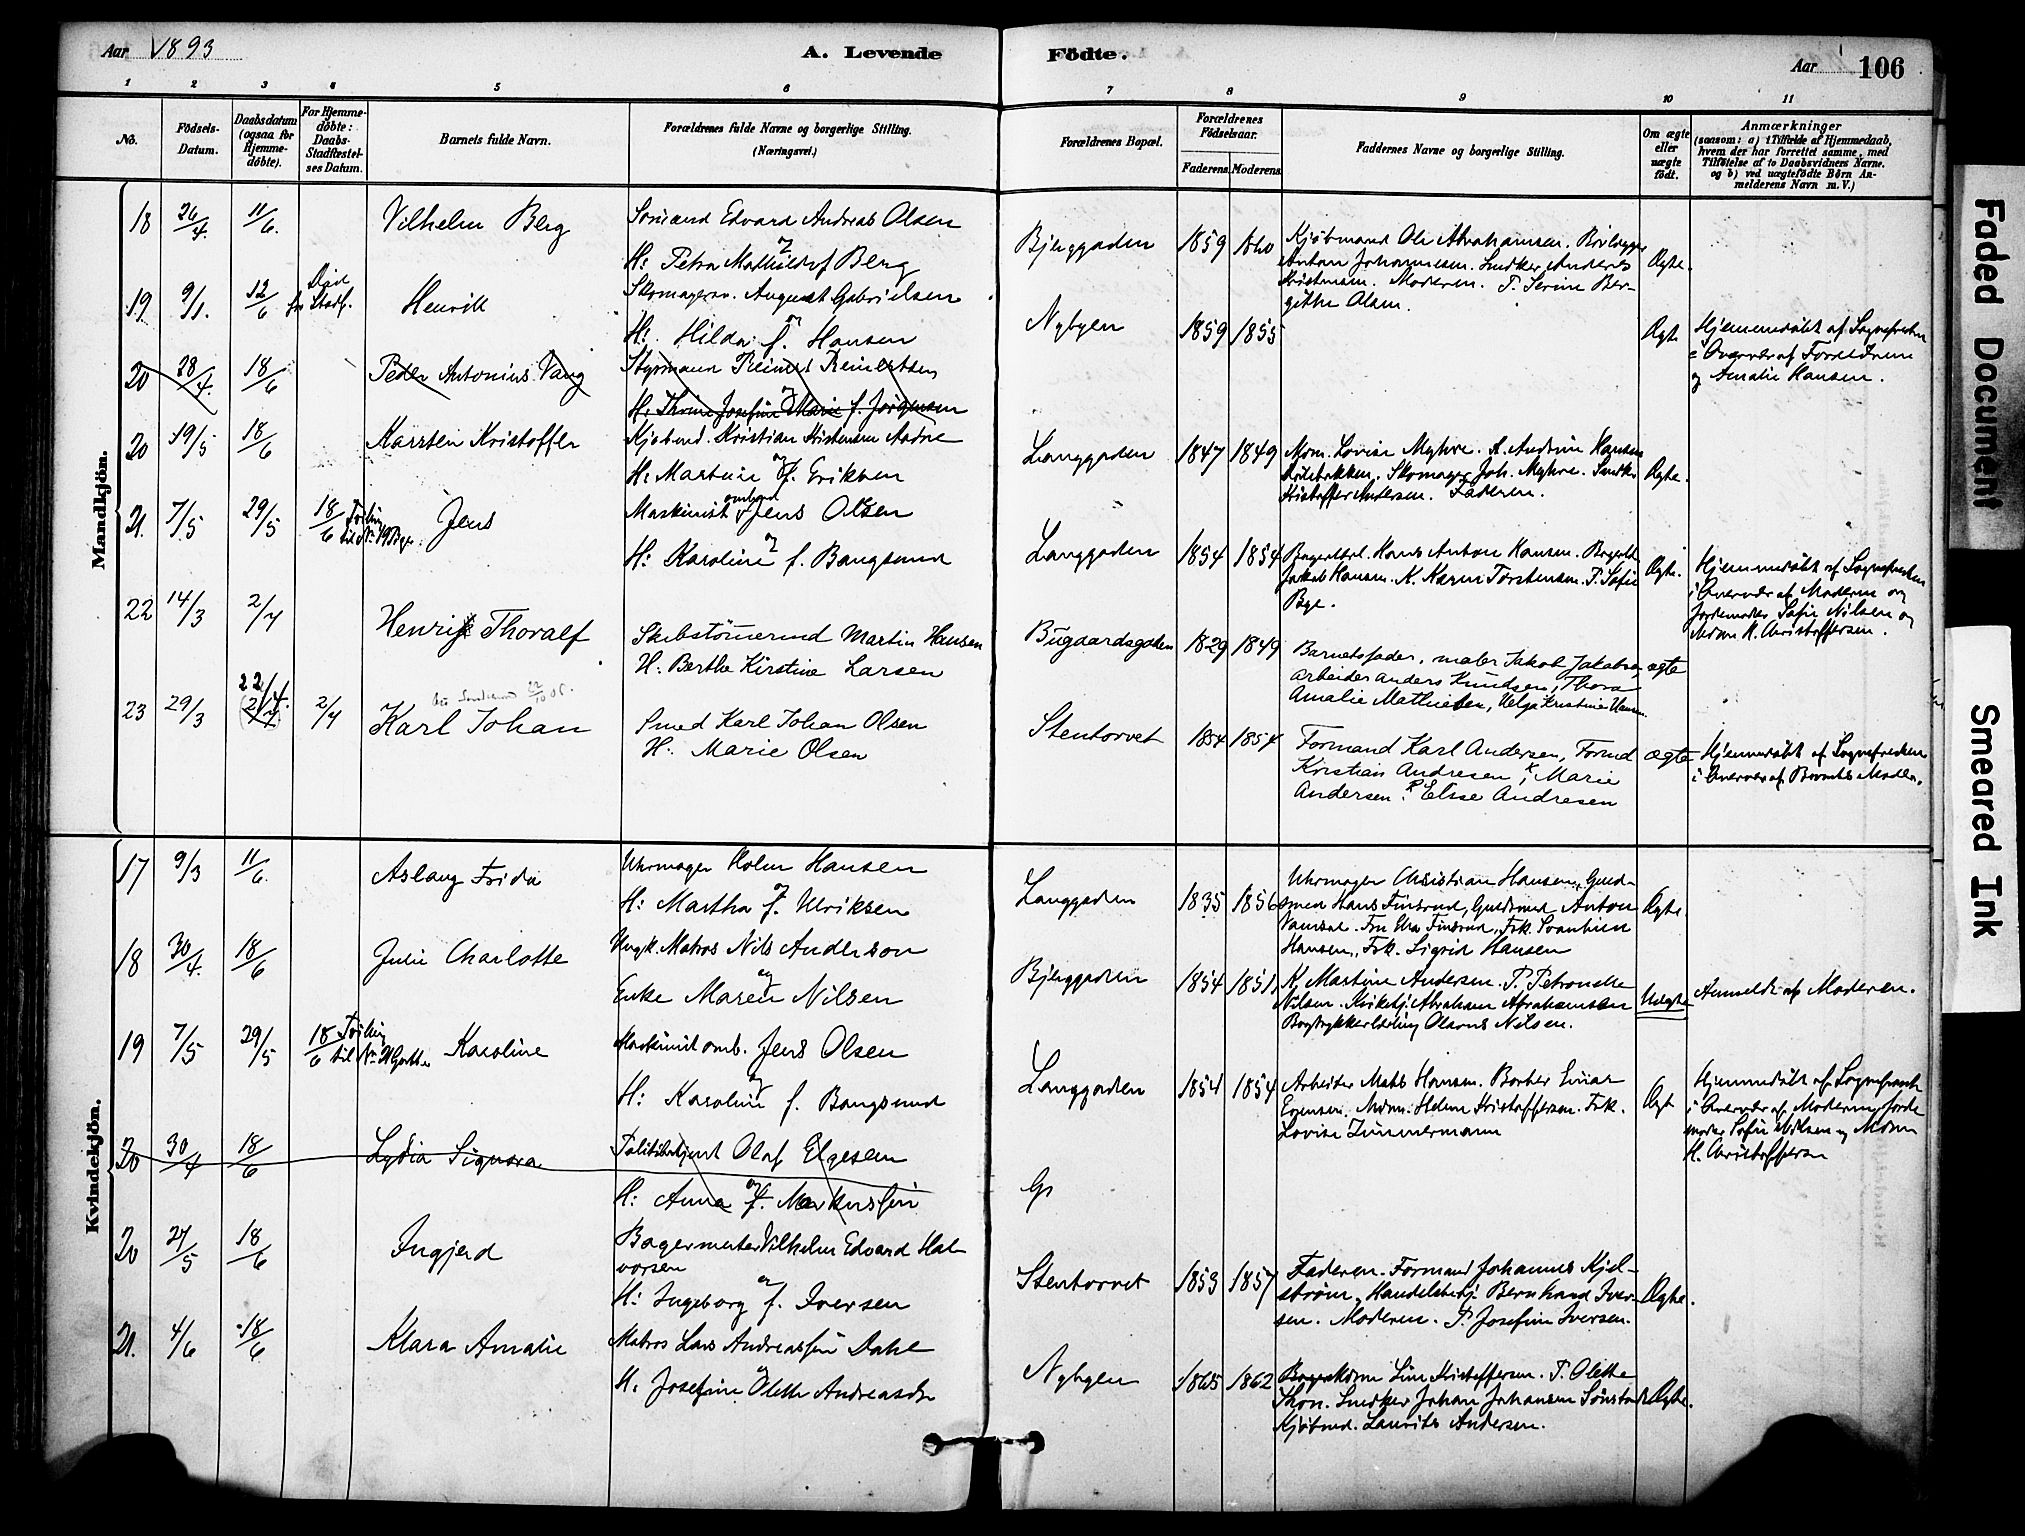 Aar 1893
A. Levende
Födte.
Aar 106
1 2 3 4 5 6 7 8 9 10 11
No.
Födsels-
Datum.
Daabsdatum
(ogsaa for
Hjemme-
döbte).
For Hjemme-
döbte:
Daabs-
Stadfæstel-
ses Datum.
Barnets fulde Navn.
Forældrenes fulde Navne og borgerlige Stilling.
(Næringsvei.)
Forældrenes Bopæl.
Forældrenes
Födselsaar.
Faderens. Moderens.
Faddernes Navne og borgerlige Stilling.
Om ægte
eller
uægte
födt.
Anmærkninger
(saasom: a) i Tilfælde af Hjemmedaab,
hvem der har forrettet samme, med
Tilföielse af to Daabsvidners Navne,
og b) ved uægtefödte Börn An-
melderens Navn m.V.)
Mandkjön.
18 26/4. 11/6. Vilhelm Berg
Sömand Edvard Andreas Olsen
og
H: Petra Mathilde f Berg
Bjerggaden 1859 1860
Kjøbmand Ole Abrahamsen.
Anton Johannesen. Snedker Anders
Kristensen. Moderen. P. Serine Ber-
githa Olsen.
Ægte.
19 9/1. 12/6 Død før Stadf. Henrik
Skomagersv. August Gabrielsen
og
H: Hilda f. Hansen
Nybyen 1859 1855
Ægte
Hjemmedöbt af Sognepresten
i Overvær af Forældrene
og Amalie Hansen.
20 28/4. 18/6 Peder Antonius Vang
Styrmand Reinert Reinertsen
og
H: Thrine Josefine Marie f. Jørgensen
20 19/5 18/6 Karsten Kristoffer
Kjøbmd. Kristian Kristensen Aadne
og
H: Martine f. Eriksen
Langgaden 1847 1849
Mdm. Lovise Myhre. K. Andrine Hansen
Skomager Joh. Myhre. Snedker
Kristoffer Andersen. Faderen.
Ægte.
21. 7/5 29/5 18/6 Tvilling til No 19 Piger. Jens
Maskinist ombord Jens Olsen
og
H: Karoline f. Bangsund
Langgaden 1854 1854
Hans Anton Hansen.
Jakob Hansen. K. Karen Torstensen. P. Sofie
Bye.
Ægte.
Hjemmedöbt af Sognepresten
i Overvær af Moderen og
Jordemoder Sofie Nilsen og
Mdm H. Christoffersen.
22 14/3 2/7 Henrik Thoralf
Skibstömmermd Martin Hansen
H: Berthe Kirstine Larsen
Bugaardsgaden 1829 1849
Barnets fader, maler Jakob Jakobsen,
arbeider Anders Knudsen, Thora
Amalie Mathiesen, Helga Kristine Hansen.
ægte
23 29/3 22/4. (2/7) 2/7 Karl Johan
Smed Karl Johan Olsen
H: Marie Olsen
Stentorvet 1854 1854
Formand Karl Andersen, Formd
Kristian Andresen, K. Marie
Andersen. P. Elise Andresen
ægte
Hjemmedöbt af Sognepresten
i Overvær af Barnets Moder.
Kvindekjön.
17 9/3 11/6. Aslaug Frida
Uhrmager Holm Hansen
og
H: Martha f. Ulriksen
Langgaden 1835 1856
Uhrmager Christian Hansen, Guld-
smed Hans Finsrud, Guldsmed Anton
Fru Finsrud, Frk.
Hansen, Frk. Sigrid Hansen
Ægte.
18 30/4. 18/6 Julie Charlotte
Ungk. Matros Nils Anderson
og
Enke Maren Nilsen
Bjerggaden 1854 1851.
K. Martine Andersen. P. Petronelle
Nilsen. Abraham Abrahamsen
Bogtrykkerlærling Olaves Nilsen.
Uægte
Anmeldt af Moderen.
19 7/5 29/5 18/6 Tvilling til No 21 Gutter Karoline
Maskinist omb. Jens Olsen
og
H: Karoline f. Bangsund
Langgaden 1854 1854
Arbeider Mads Hansen. Barber Einar
Evensen. Mdm. Helene Kristoffersen. Frk.
Lovise Zimmermann
Ægte
Hjemmedöbt af Sognepresten
i Overvær af Moderen, Jorde
moder Sofie Nilsen og Mdm
H. Christoffersen
20 30/4 18/6 Lydia Signora
Politibetjent Olaf Elgesem
og
H: Anna f. Markussen
G
20 27/5 18/6 Ingjerd
Bagermester Vilhelm Edvard Hal-
vorsen
og
H: Ingeborg f. Iversen
Stentorvet 1853 1857
Faderen. Formand Johannes Kjel-
ström, Handelsbetj. Bernhard Iver-
sen. Moderen. P. Josefine Iversen.
Ægte.
21. 4/6 18/6 Klara Amalie
Matros Lars Andreassen Dahl
H. Josefine Olette Andreasdr
Nybyen 1865 1862
Line Kristoffersen. P. Olette
Thon. Snedker Johan Johansen
Kjøbmd. Laurits Andersen.
Ægte.
Faded Document
Smeared Ink